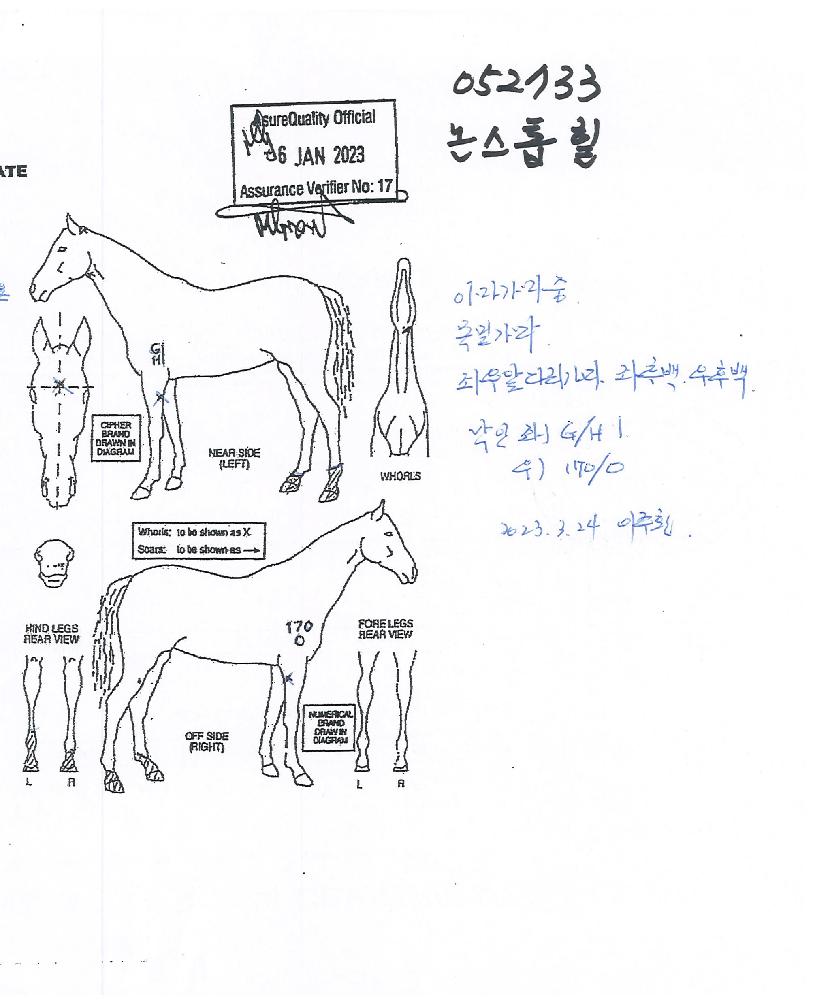 052133
논스톱 힐
AsureQuality Official
06 JAN 2023
Assurance Verifier No: 17
ATE
이마가마중
목벌가마
좌우앞다리가마. 좌후백. 우후백.
낙인 좌) G/H
우) 170/0
2023. 3. 24
G
H
CIPHER
BRAND
DRAWN IN
DIAGRAM
NEAR SIDE
(LEFT)
WHORLS
Whorls: to be shown as X
Scars: to be shown as →
HIND LEGS
REAR VIEW
170
0
FORE LEGS
REAR VIEW
NUMERICAL
BRAND
DRAWN IN
DIAGRAM
OFF SIDE
(RIGHT)
L R
L R